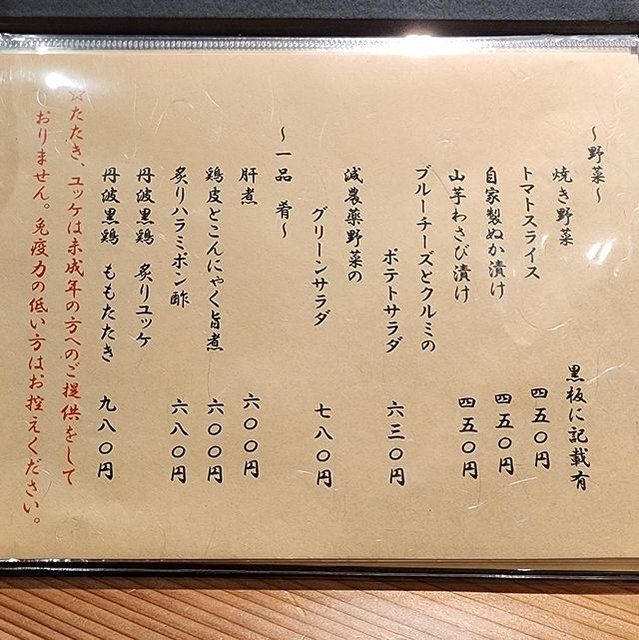 ～野菜～
焼き野菜　黒板に記載有
トマトスライス　四五〇円
自家製ぬか漬け　四五〇円
山芋わさび漬け　四五〇円
ブルーチーズとクルミの
ポテトサラダ　六三〇円
減農薬野菜の
グリーンサラダ　七八〇円
～一品　肴～
肝煮　六〇〇円
鶏皮とこんにゃく旨煮　六〇〇円
炙りハラミポン酢　六八〇円
丹波黒鶏　炙りユッケ
丹波黒鶏　ももたたき　九八〇円
☆たたき、ユッケは未成年の方へのご提供をして
おりません。免疫力の低い方はお控えください。